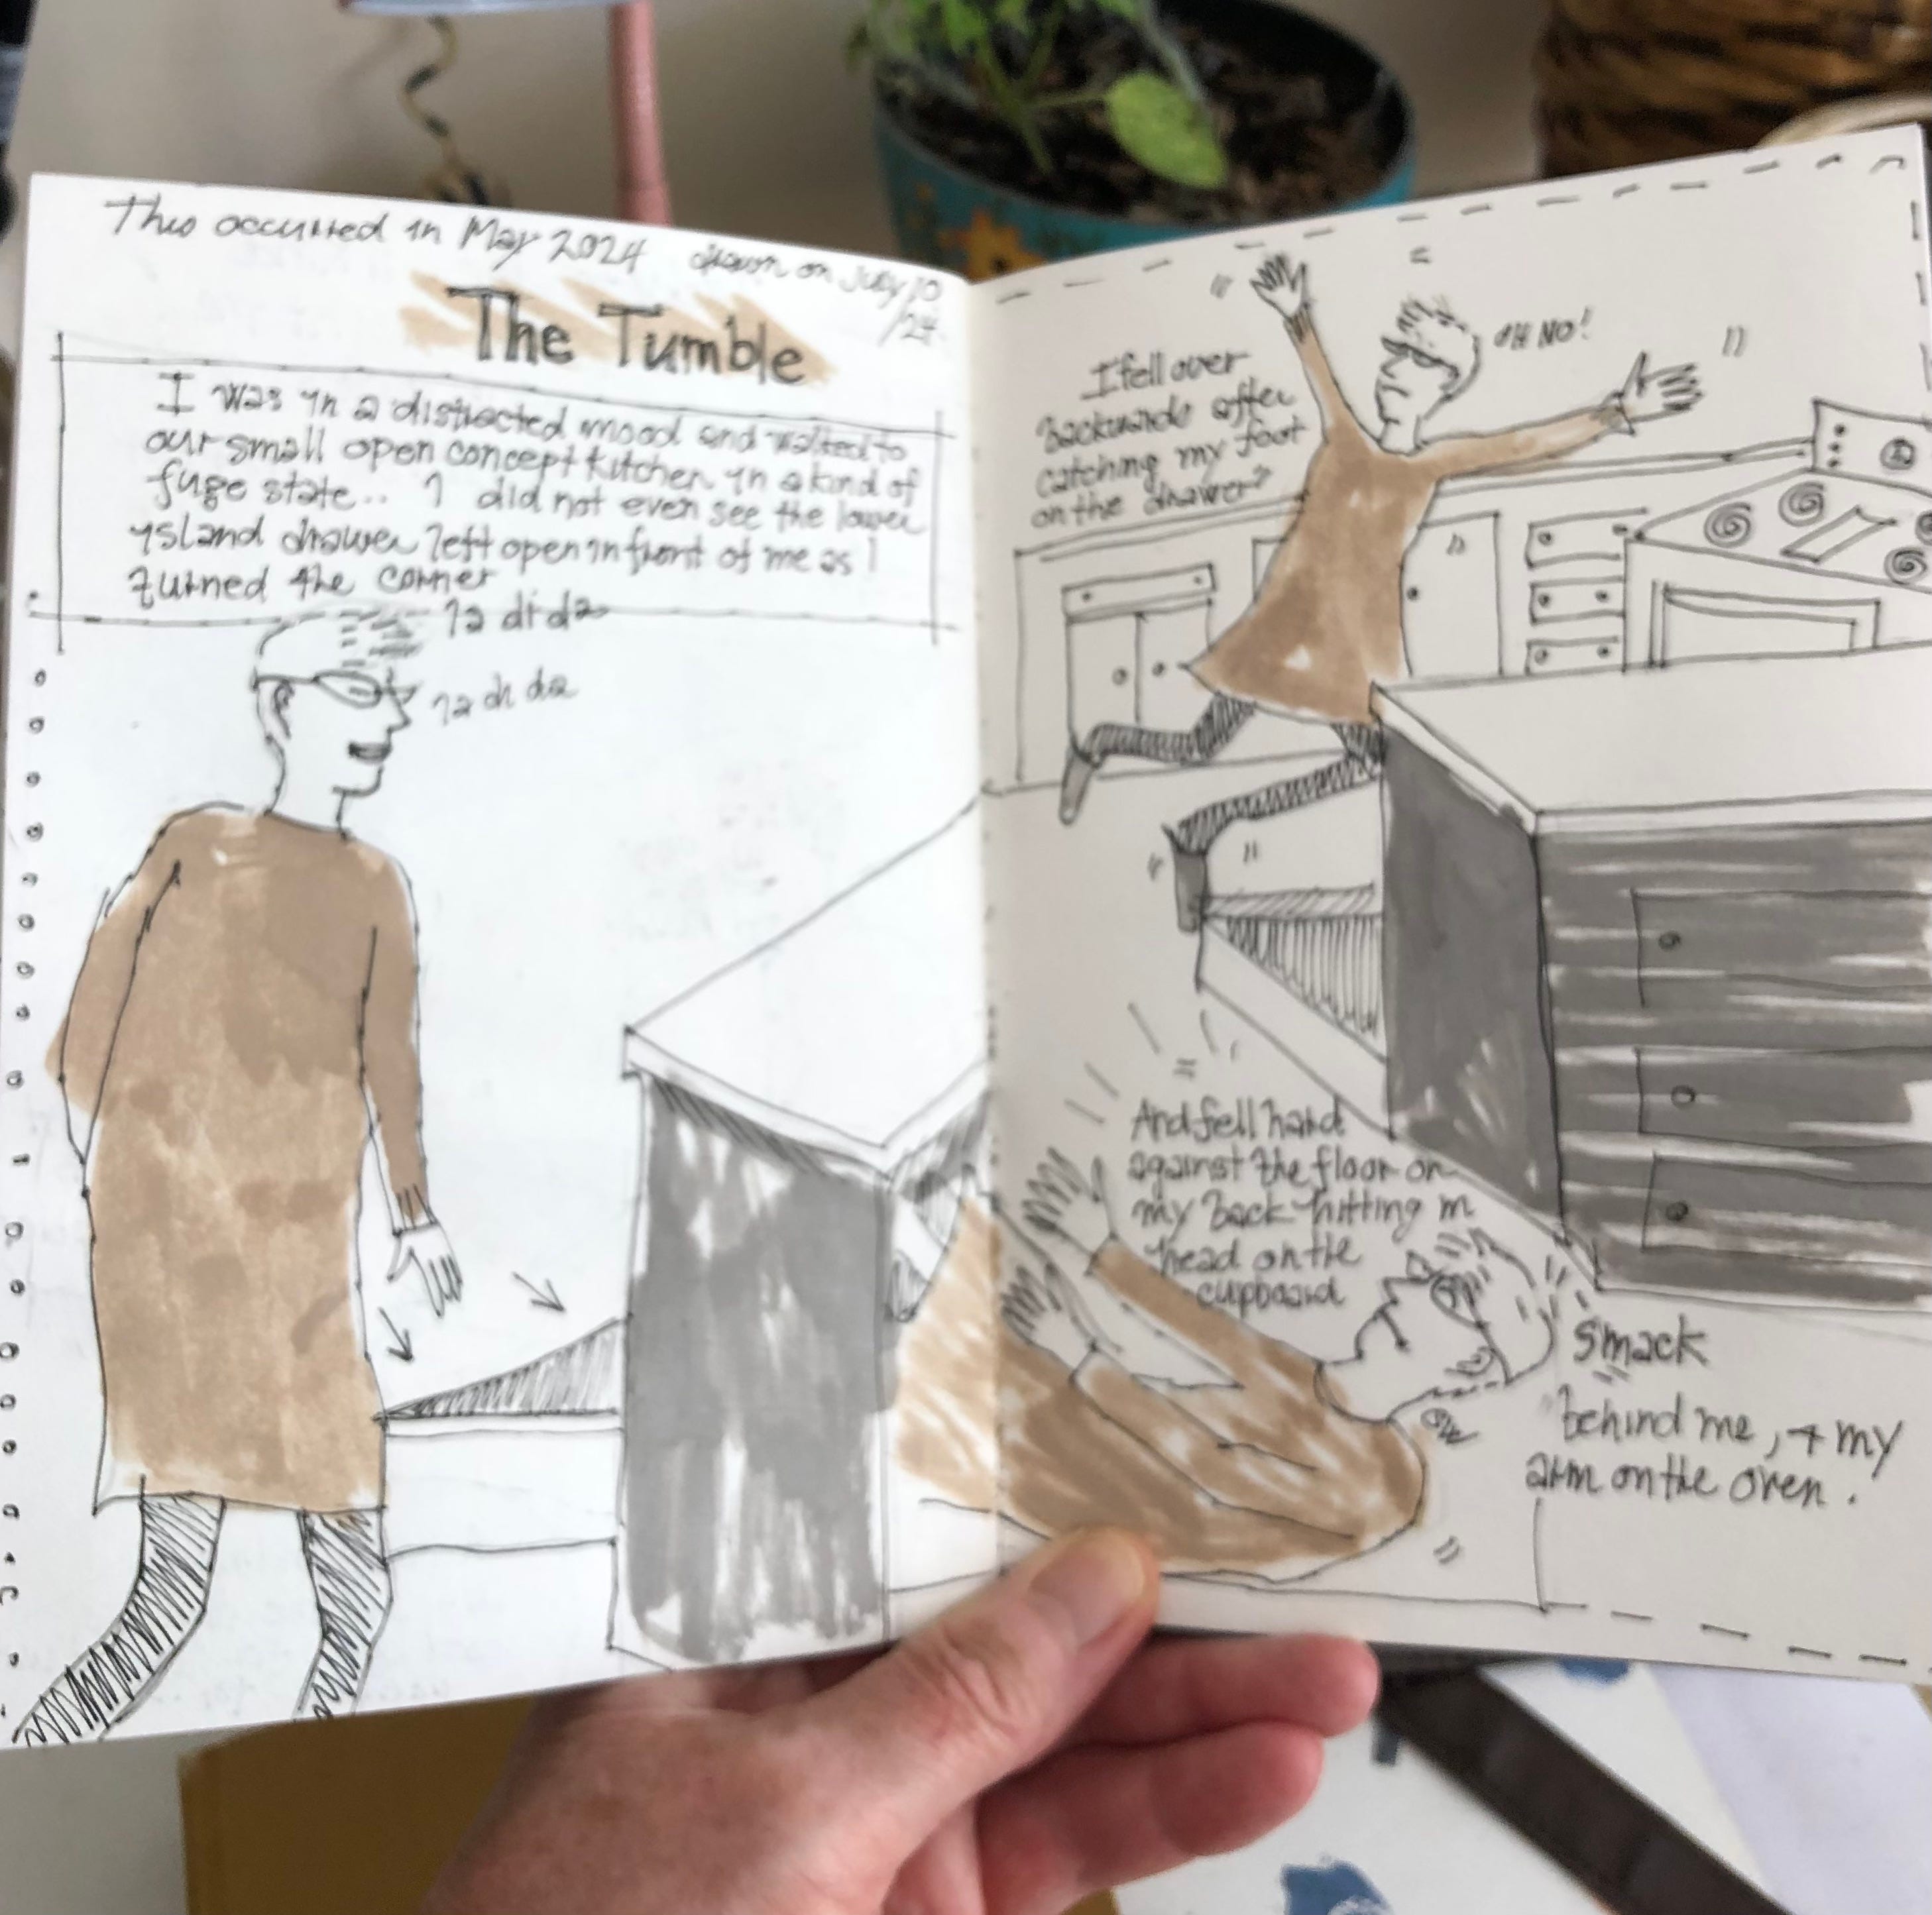 This occurred in May 2024
drawn on July 10
/24
The Tumble
I was in a distracted mood and walked to
our small open concept kitchen in a kind of
fuge state.. I did not even see the lower
island drawer left open in front of me as I
turned the corner
la di da
la di da
OH NO!
I fell over
backwards after
catching my foot
on the drawer
And fell hard
against the floor on
my back hitting m
head on the
cupboard
smack
behind me, + my
arm on the oven.